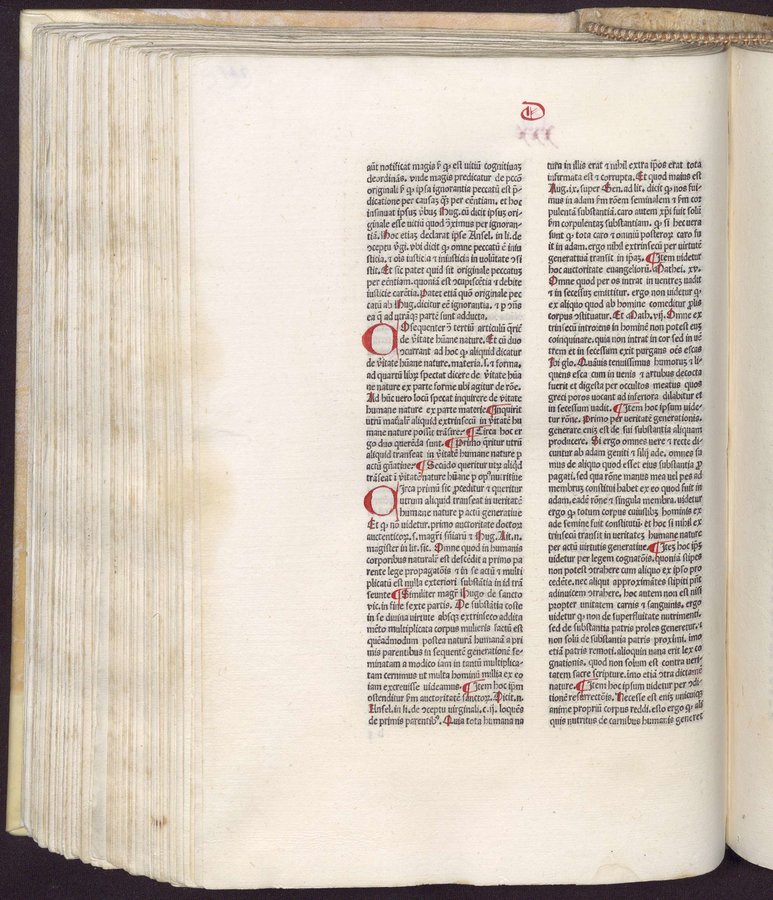 D
aūt notificat magis ꝙ est uitiū cognitiuaʒ
deordinās. vnde magis predicatur de pccō
originali ꝙ ipsa ignorantia peccatū est p̄-
dicatione per causaʒ ꝙ̄ per eēntiam. et hoc
insinuat ipsuʒ v̄buʒ Hug. cū dicit ipsuʒ ori-
ginale esse uiciū quod ↄ̄ximus per ignoran-
tiā. Hoc etiaʒ declarat ipse Ansel. in li. de
ↄceptu v̄gī. vbi dicit ꝙ omne peccatū ē iniu
sticia. ⁊ oīa iusticia ⁊ iniusticia in uolūtate ↄsi
stit. Et sic patet quid sit originale peccatuʒ
per eēntiam. quoniā est ↄcupiscētia ⁊ debite
iusticie carētia. Patet etiā quō originale pec
catū ab Hug. dicitur eē ignorantia. ⁊ p oēs
ea ꝗ̄ ad utrāqʒ partē sunt adducta.
COsequenter ꝫ tertiū articulū q̄rit̄
de v̄itate hūane nature. Et cū duo
ↄcurrant ad hoc ꝙ aliquid dicatur
de v̄itate hūane nature. materia. s. ⁊ forma.
ad quartū librʒ spectat dicere de v̄itate hūa
ne nature ex parte forme ubi agitur de rōe.
Ad hūc uero locū spectat inquirere de v̄itate
humane nature ex parte materie. ¶ Inquirit̄
utrū aliqd extrinsecū in v̄itatē hu
mane nature possit trāsire. ¶ Circa hoc er
go duo querēda sunt. ¶ Primo q̄ritur utrū
aliquid transeat in v̄itatē humane nature p
actū gn̄atiue. ¶ Secūdo queritur utꝝ aliqd
trāseat ī v̄itatē nature hūane p opꝰ nutritiue
CIrca primū sic ꝓceditur ⁊ queritur
utrum aliquid transeat in ueritatē
humane nature p actū generatiue
Et ꝙ nō videtur. primo auctoritate doctoꝝ
auctenticoꝝ. s. magrī sn̄iarū ⁊ Hug. Ait. n.
magister in lit. sic. Omne quod in humanis
corporibus naturalr̄ est descēdit a primo pa
rente lege propagatōis ⁊ in se actū ⁊ multi
plicatū est nulla exteriori substātia in id trā
seunte ¶ Similiter magr̄ Hugo de sancto
vic. in fine sexte partis. De substātia coste
in se diuina virtute absqʒ extrinseco addita
mēto multiplicata corpus mulieris factū est
quēadmodum postea naturā humanā a pri
mis parentibus in sequentē generationē se-
minatam a modico iam in tantū multiplica-
tam cernimus ut multa hominū millia ex eo
iam excreuisse uideamus. ¶ Item hoc ip̄m
ostenditur ẜm auctoritatē sanctoꝝ. Dicit. n.
Ansel. in li. de ↄceptu uirginali. c. ij. loquēs
de primis parentibꝰ. Quia tota humana na
tura in illis erat ⁊ nihil extra ip̄os erat tota
infirmata est ⁊ corrupta. Et quod maius est
Aug. ix. super Gen. ad lit. dicit ꝙ nos fui-
mus in adam ẜm rōem seminalem ⁊ ẜm cor
pulentā substantiā. caro autem xp̄i fuit solū
ẜm corpulentaʒ substantiam. ꝙ si hec uera
sunt ꝙ tota caro ⁊ oīnium posteroꝝ caro fu
it in adam. ergo nihil extrinsecū per virtutē
generatiuā transit in ip̄aʒ. ¶ Item uidetur
hoc auctoritate euangelioꝝ. Mathei. xv.
Omne quod per os intrat in uentreʒ uadit
⁊ in secessuʒ emittitur. ergo non uidetur ꝙ
ex aliquo quod ab homine comeditur ꝓlis
corpus ↄstituatur. Et Math. vij. Omne ex
trinsecū introiens in hominē non potest euʒ
coinquinare. quia non intrat in cor sed in uē
trem et in secessum exit purgans oēs escas
Ibi glo. Quāuis tenuissimus humoꝝ ⁊ li-
quens esca cum in uenis ⁊ artubus decocta
fuerit et digesta per occultos meatus quos
greci poros uocant ad inferiora dilabitur et
in secessum uadit. ¶ Item hoc ipsum uide-
tur rōne. Primo per veritatē generationis.
generare eniʒ est de sui substantia aliquam
producere. Si ergo omnes vere ⁊ recte di-
cuntur ab adam geniti ⁊ filij ade. omnes su
mus de aliquo quod esset eius substantia ꝓ
pagati. sed qua rōne manus mea uel pes ad
membruʒ constitui habet ex eo quod fuit in
adam. eadē rōne ⁊ singula membra. uidetur
ergo ꝙ totum corpus cuiuslibʒ hominis ex
ade semine fuit constitutū et hoc si nihil ex
trinsecū transit in veritateʒ humane nature
per actū uirtutis generatiue. ¶ Iteʒ hoc ip̄ʒ
uidetur per legem cognatōis. quoniā stipes
non potest ↄtrahere cum aliquo ex ipso pro
cedēte. nec aliqui approximātes stipiti pn̄t
adinuicem ↄtrahere. hoc autem non est nisi
propter unitatem carnis ⁊ sanguinis. ergo
uidetur ꝙ non de superfluitate nutrimenti.
sed de substantia patris proles generetur. ⁊
non solū de substantia patris proximi. imo
etiā patris remoti. alioquin uana erit lex co
gnationis. quod non solum est contra veri-
tatem sacre scripture. imo etiā ↄtra dictamē
nature. ¶ Item hoc ipsum uidetur per ↄdi-
tionē resurrectōis. Necesse est eniʒ unicuiqʒ
anime propriū corpus reddi. esto ergo ꝙ ali
quis nutritus de carnibus humanis generet